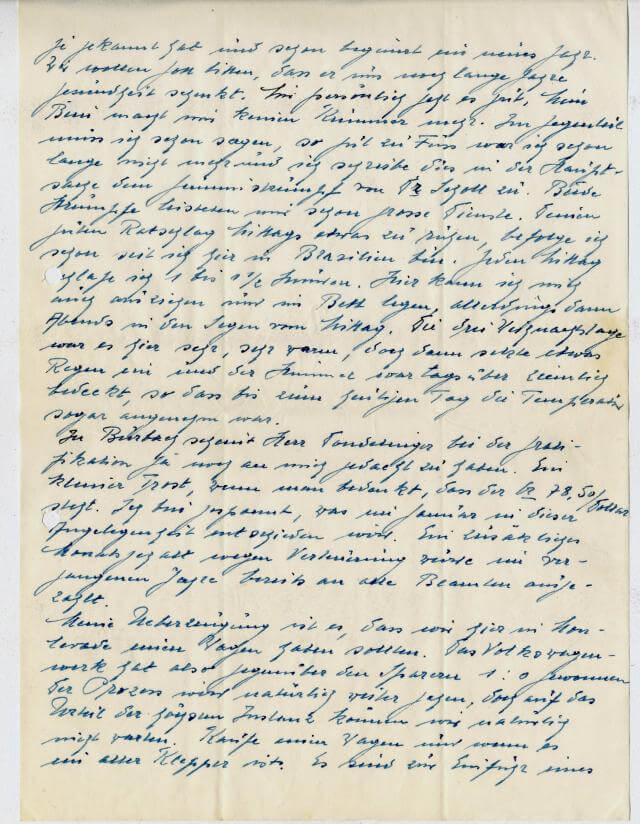 je gekannt hat und schon beginnt ein neues Jahr.
Wir wollen Gott bitten, dass er uns noch lange Jahre
Gesundheit schenkt. Mir persönlich geht es gut, mein
Bein macht mir keinen Kummer mehr. Im Gegenteil
muss ich schon sagen, so gut zu Fuss war ich schon
lange nicht mehr und ich schreibe dies in der Haupt-
sache dem Gummistrumpf von Dr Scholl zu. Beide
Strümpfe leisteten mir schon grosse Dienste. Deinen
guten Ratschlag Mittags etwas zu ruhen, befolge ich
schon seit ich hier in Brasilien bin. Jeden Mittag
schlafe ich 1 bis 1 1/2 Stunden. Hier kann ich mich
auch ausziehen und ins Bett legen, allerdings dann
Abends in den Segen vom Mittag. Die drei Weihnachtstage
war es hier sehr, sehr warm, doch dann setzte etwas
Regen ein und der Himmel war tagsüber ziemlich
bedeckt, so dass bis zum heutigen Tag die Temperatur
sogar angenehm war.
In Burbach scheint Herr bei der Grati-
fikation ja noch an mich gedacht zu haben. Ein
kleiner Trost, wenn man bedenkt, dass der Cr 78,50/Dollar
steht. Ich bin gespannt, was im Januar in dieser
Angelegenheit entschieden wird. Ein zusätzliches
Monatsgehalt wegen Verteuerung wurde im ver-
gangenen Jahre bereits an alle Beamten ausge-
zahlt.
Meine Ueberzeugung ist es, dass wir hier in Mon-
levade einen Wagen haben sollten. Das Volkswagen-
werk hat also gegenüber den Sparern 1:0 gewonnen
Der Prozess wird natürlich weiter gehen, doch auf das
Urteil der höchsten Instanz können wir natürlich
nicht warten. Kaufe einen Wagen nur wenn es
ein alter Klepper ist. Es sind zur Einfuhr eines